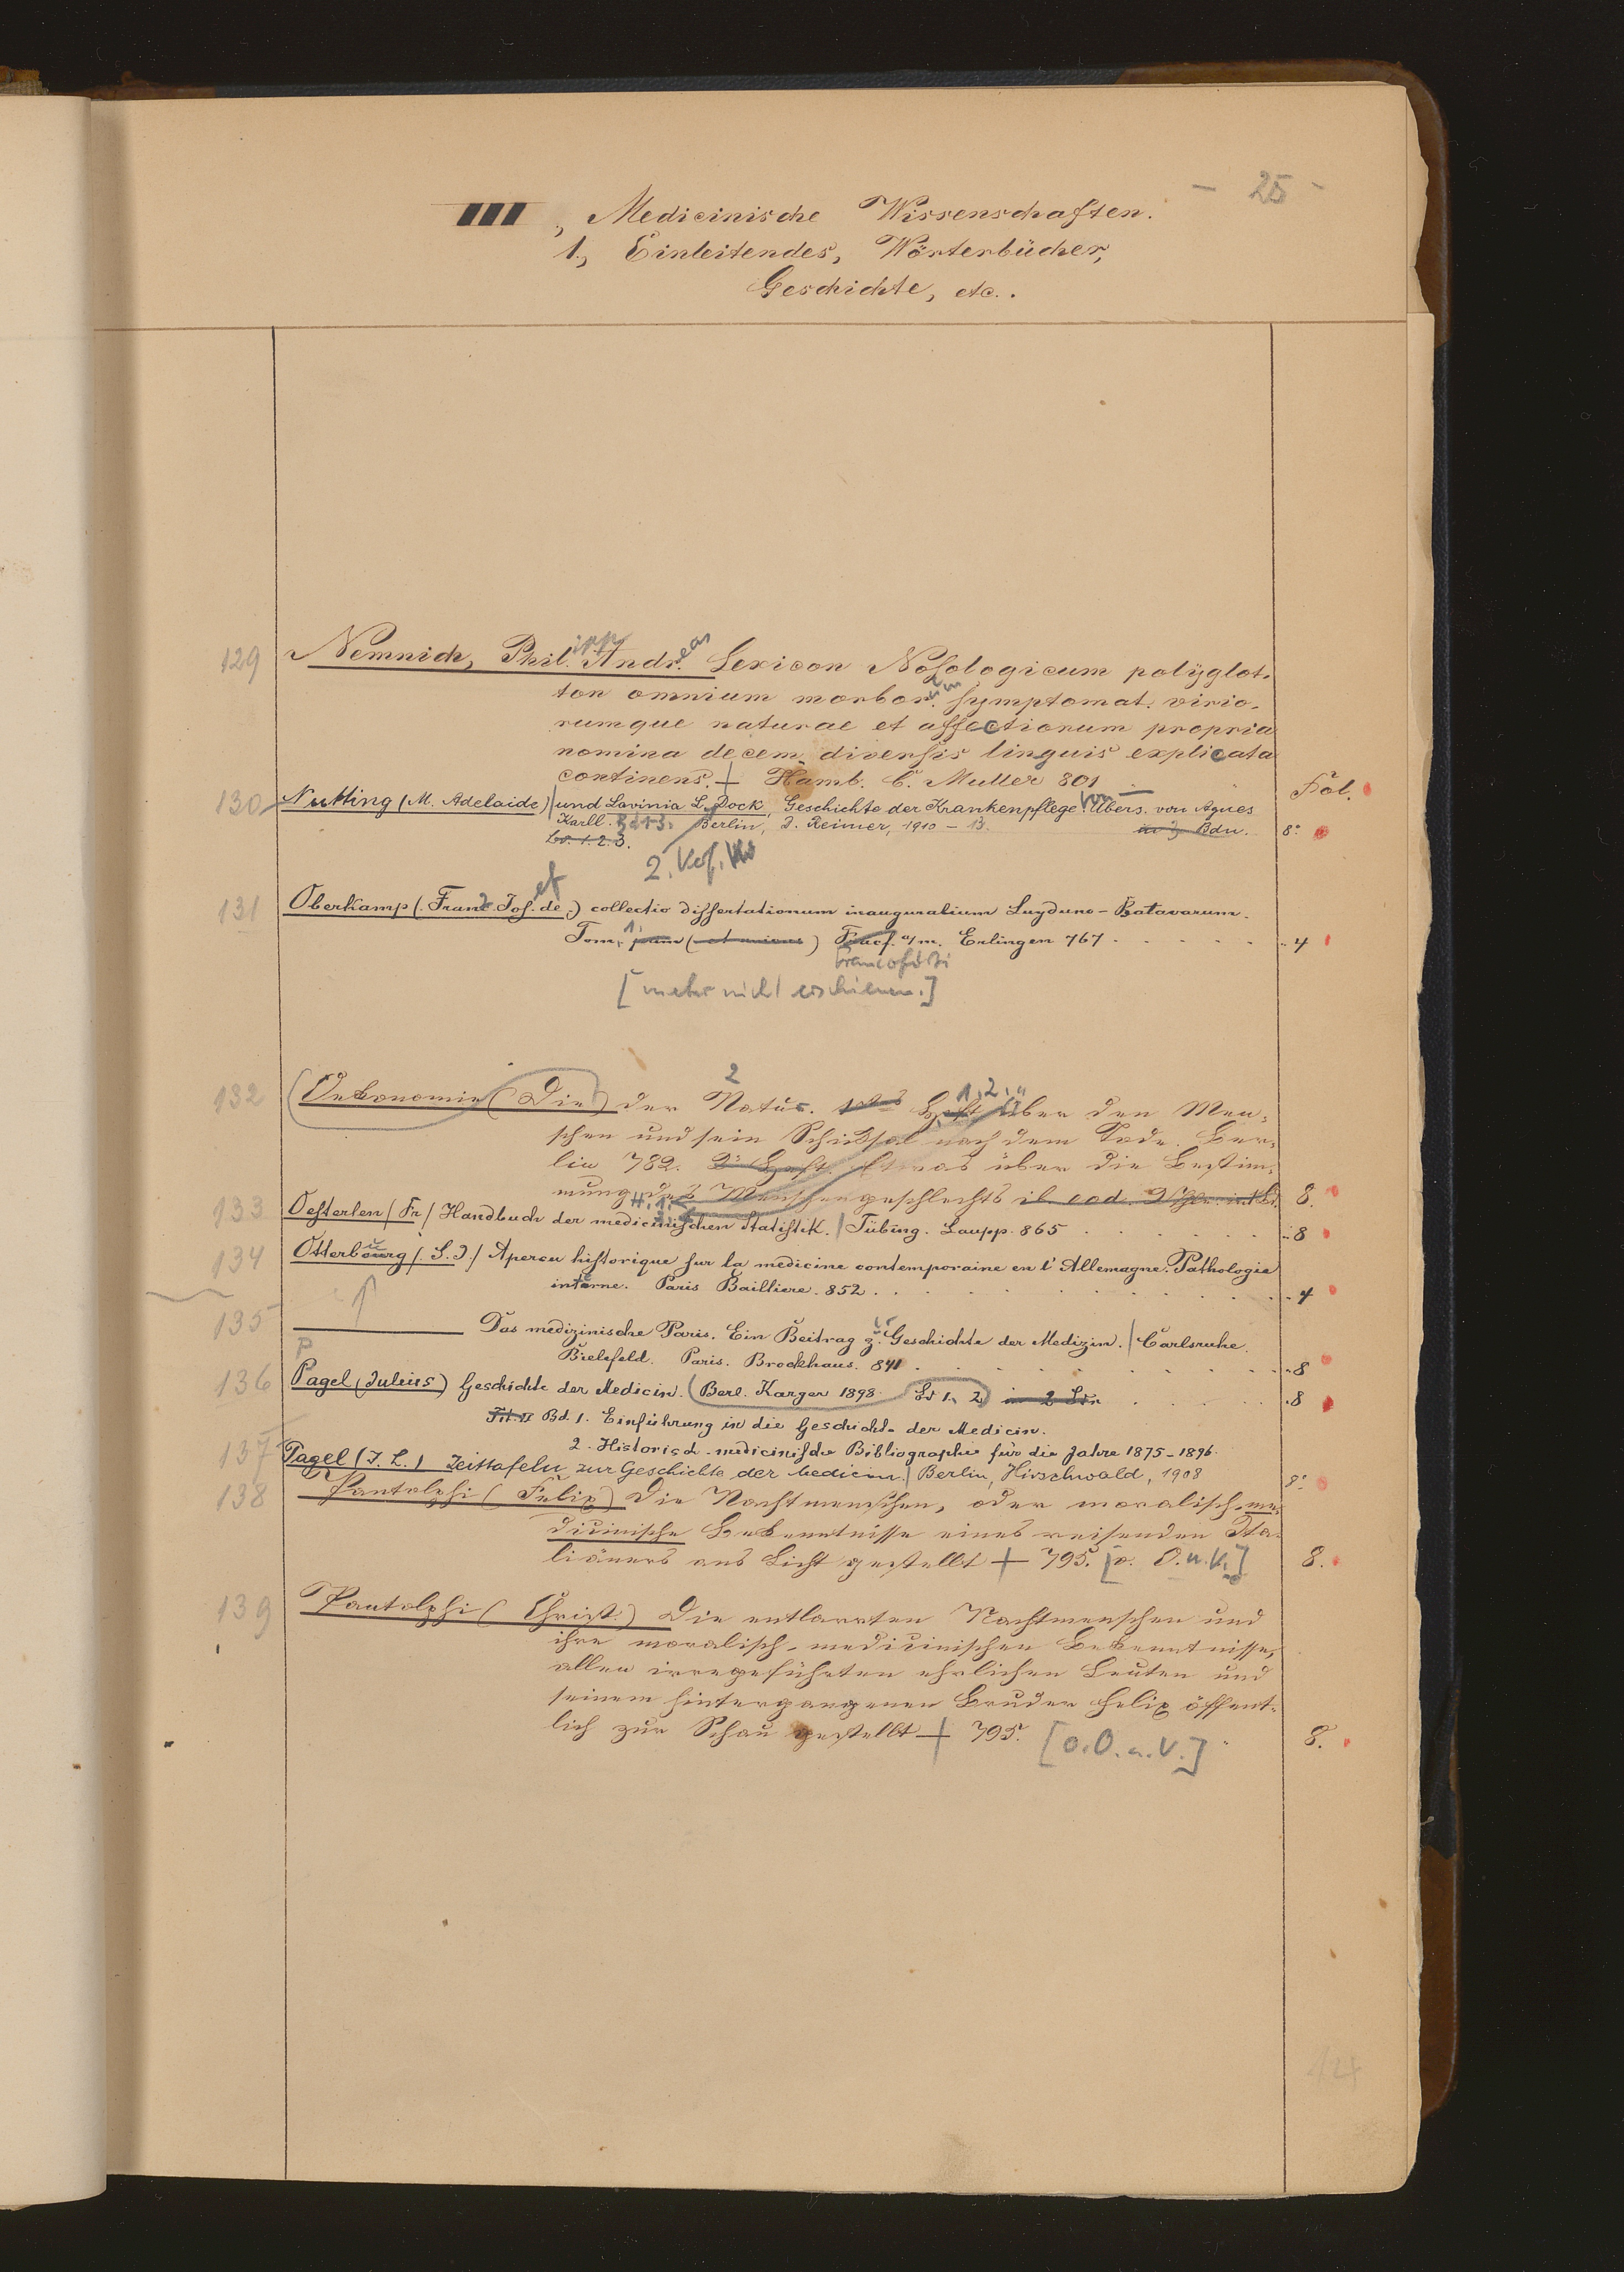 - 25 -
III, Medicinische Wissenschaften.
1., Einleitendes, Wörterbücher,
Geschichte, etc..
129 Nemnich, Phil.ipp Andr.eas Lexicon Nosologicum polÿglot-
ton omnium morbor.um symptomat. virio-
rumque naturae et affectionum propria
nomina decem diversis linguis explicata
continens. + Hamb. C. Muller 801. Fol.
130 Nutting (M. Adelaide) | und Lavinia L. Dock, Geschichte der Krankenpflege. Übers. von Agnes
Karll. Bd 1-3. Berlin, D. Reimer, 1910 - 13. in 3 Bdn. 8°
Bd. 1. 2. 3.
2. Verf.
131 Oberkamp (Franc. Jos. de) collectio dissertationum inauguralium Lugduno-Batavarum.
Tom. 1. Francf. a/m. Erlingen 767 . . . . . 4
Francofurti
[mehr nicht erschienen.]
132 (Oekonomie (Die) der Natur. 1tes Heft über den Men-
schen und sein Schicksal nach dem Tode. Ber-
lin 782. 2s Heft. Etwas über die Bestim-
mung des Menschengeschlechts ib. eod. 8.
133 Oesterlen / Fr / Handbuch der medicinischen Statistik. / Tübing. Laupp. 865 . . . . . 8
134 Otterbourg /. S. J. / Apercu historique sur la medicine contemporaine en l'Allemagne. Pathologie
interne. Paris Bailliere. 852 . . . . . 4
135 ——— Das medizinische Paris. Ein Beitrag z. Geschichte der Medizin. / Carlsruhe.
Bielefeld. Paris. Brockhaus. 841 . . . . . 8
136 Pagel (Julius) Geschichte der Medicin. (Berl. Karger 1898. Bd 1. 2) in 2 Bdn . . . . 8
Bd. 1. Einführung in die Geschichte der Medicin.
2. Historisch-medicinische Bibliographie für die Jahre 1875-1896.
137 Pagel (J. L.) Zeittafeln zur Geschichte der Medicin. / Berlin, Hirschwald, 1908 8°
138 Pantolphi (Felix) Die Nachtmenschen, oder moralisch-me-
dicinische Bekenntnisse eines reisenden Ita-
liäners ans Licht gestellt + 795. [o. O. u. V.] 8.
139 Pantolphi (Christ.) Die entlarvten Nachtmenschen und
ihre moralisch-medicinischen Bekenntnisse,
allen irregeführten ehrlichen Leuten und
seinem hintergangenen Bruder Felix öffent-
lich zur Schau gestellt + 795. [o. O. u. V.] 8.